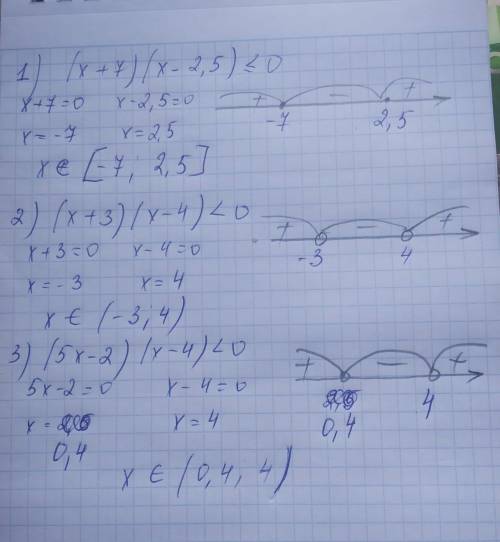 1) (x+7)(x-2,5)≤0
x+7=0 x-2,5=0 + - +
x=-7 x=2,5 -7 2,5
x∈[-7; 2,5]
2) (x+3)(x-4)<0 + - +
x+3=0 x-4=0 -3 4
x=-3 x=4
x∈(-3;4)
3) (5x-2)(x-4)<0 + - +
5x-2=0 x-4=0 4
x= x=4 0,4
0,4
x∈(0,4, 4)